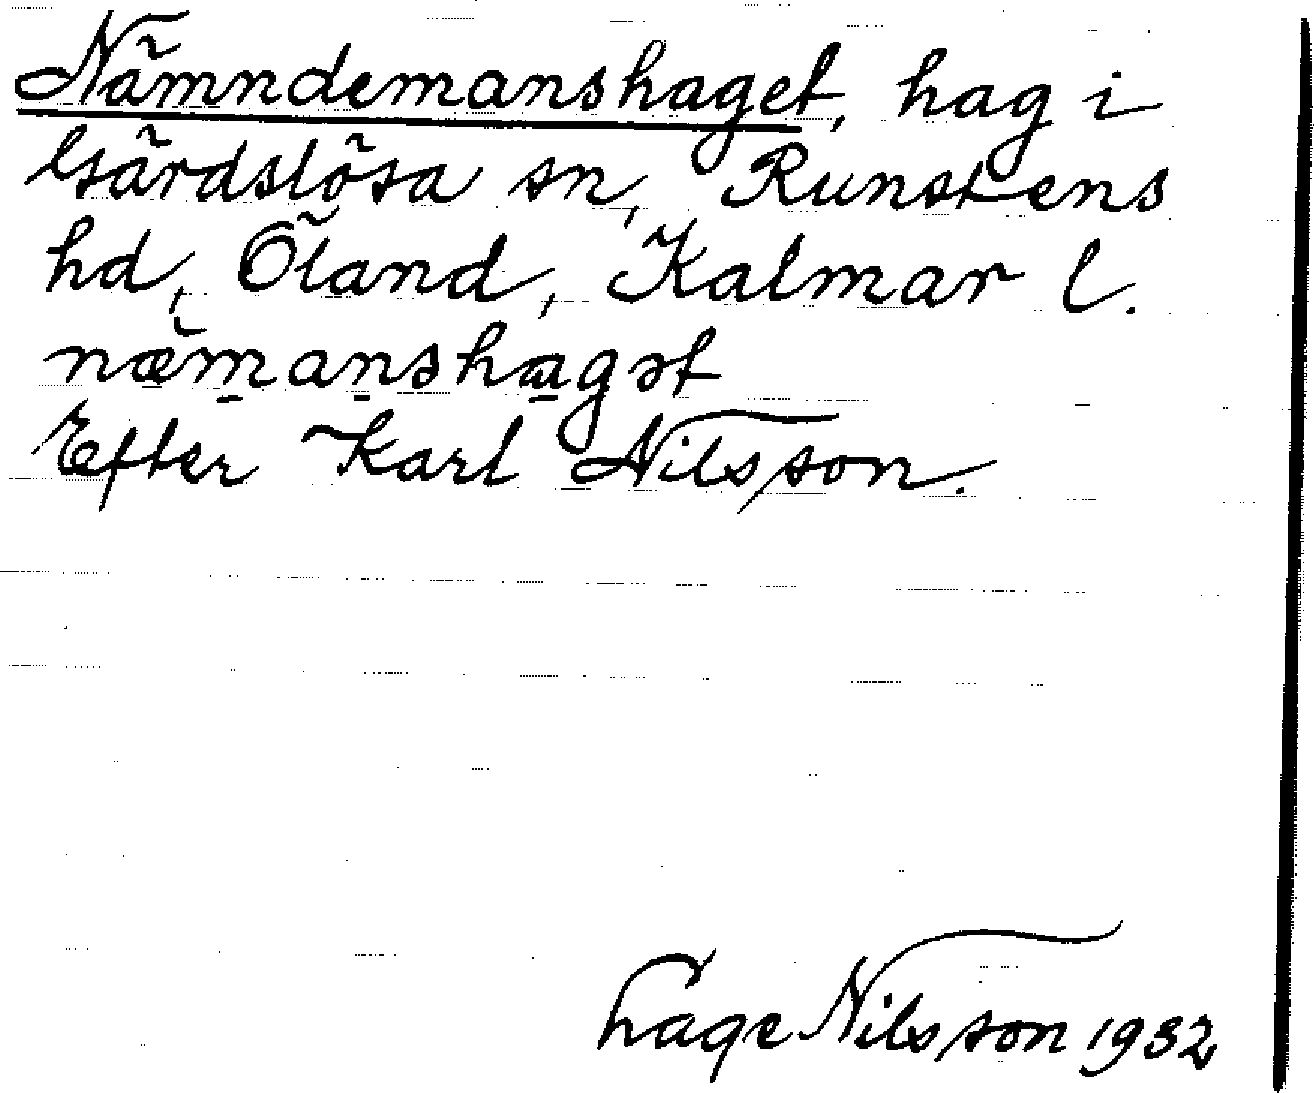 Nämndemanshaget, hag i
Gärdslösa sn, Runstens
hd, Öland, Kalmar l.
næ̀m̠an̠sha̠gət
Efter Karl Nilsson.
Nilsson 1932